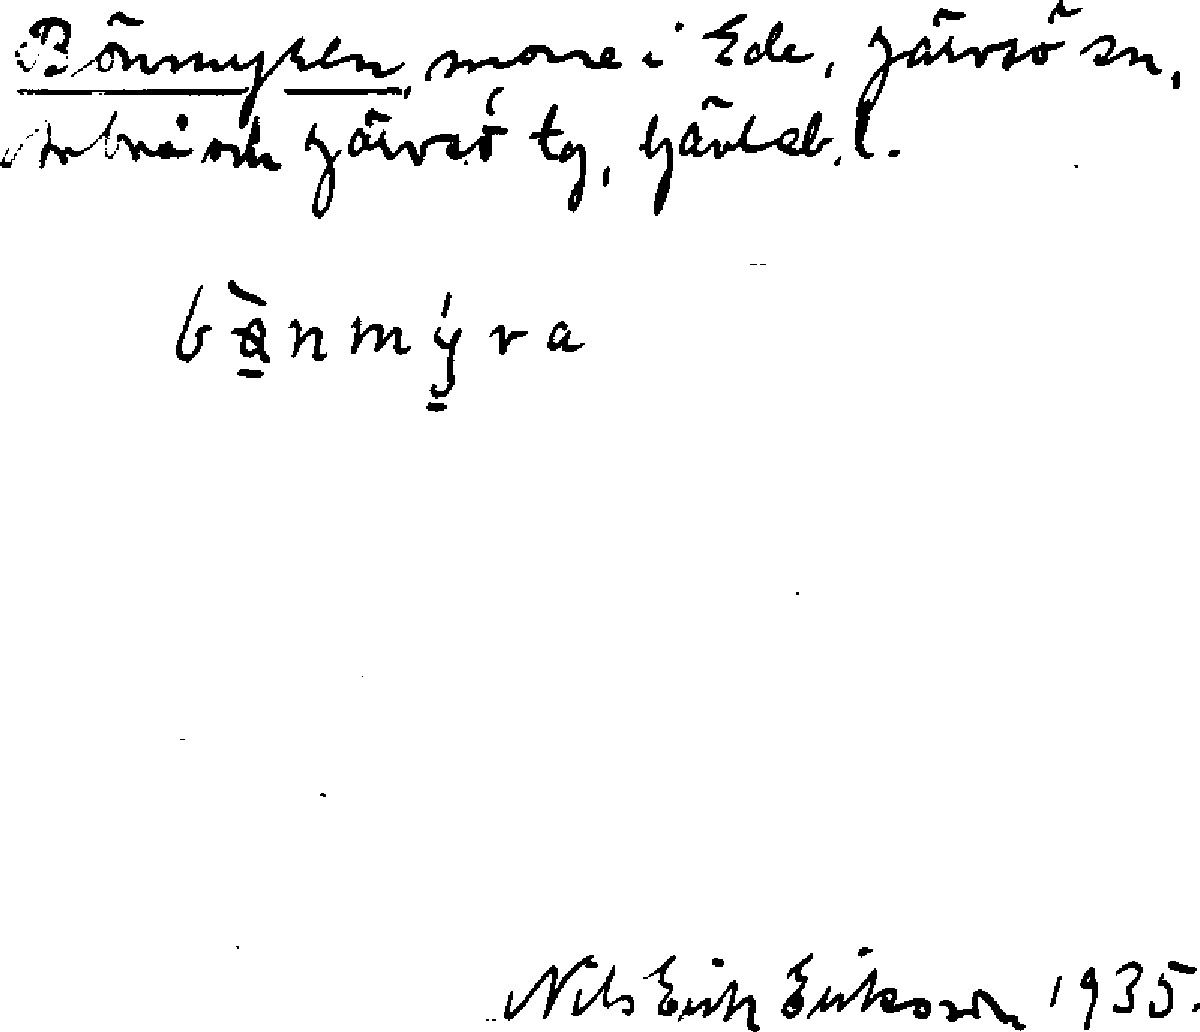 Bönmyren, mosse i Ede, Järvsö sn,
Arbrå och Järvsö tg, Gävleb. l.
Nils Erik Eriksson 1935.